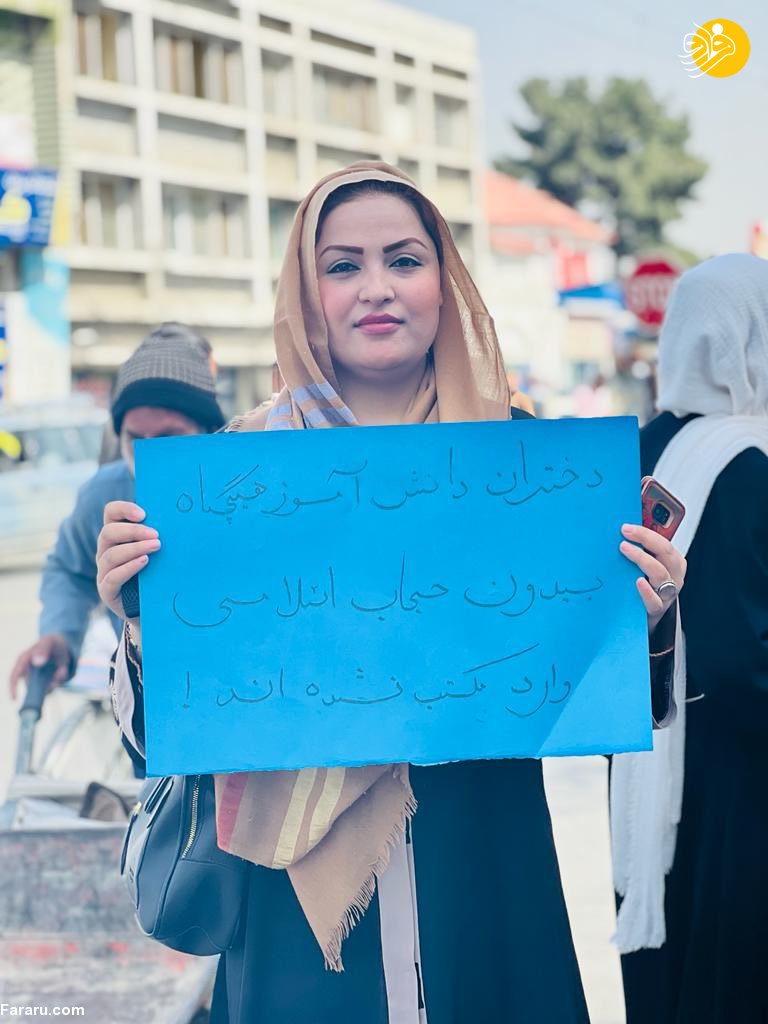 دختران دانش آموز هیچگاه
بدون حجاب اسلامی
وارد مکتب نشده اند !
STOP
Fararu.com